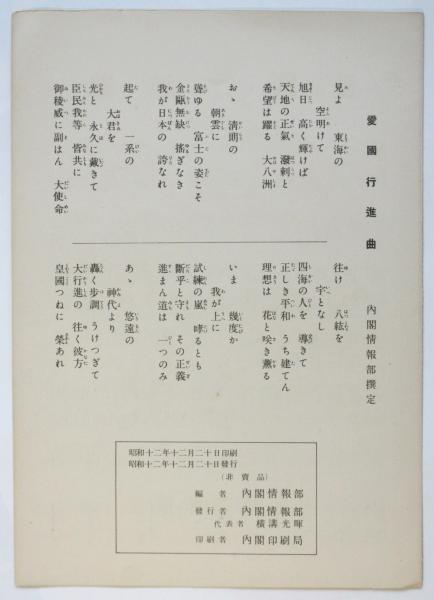 愛國行進曲
內閣情報部撰定
見よ 東海の
空明けて
旭日 高く輝けば
天地の正氣 潑剌と
希望は躍る 大八洲
おゝ 淸朗の
朝雲に
聳ゆる 富士の姿こそ
金甌無缺 搖ぎなき
我が日本の 誇なれ
起て 一系の
大君を
光と 永久に戴きて
臣民我等 皆共に
御稜威に副はん 大使命
往け 八紘を
宇となし
四海の人を 導きて
正しき平和 うち建てん
理想は 花と咲き薰る
いま 幾度か
我が上に
試練の嵐 哮るとも
斷乎と守れ その正義
進まん道は 一つのみ
あゝ 悠遠の
神代より
轟く步調 うけつぎて
大行進の 往く彼方
皇國つねに 榮あれ
昭和十二年十二月二十日印刷
昭和十二年十二月二十日發行
(非賣品)
編者 內閣情報部
發行者 內閣情報部
代表者 橫溝光暉
印刷者 內閣印刷局